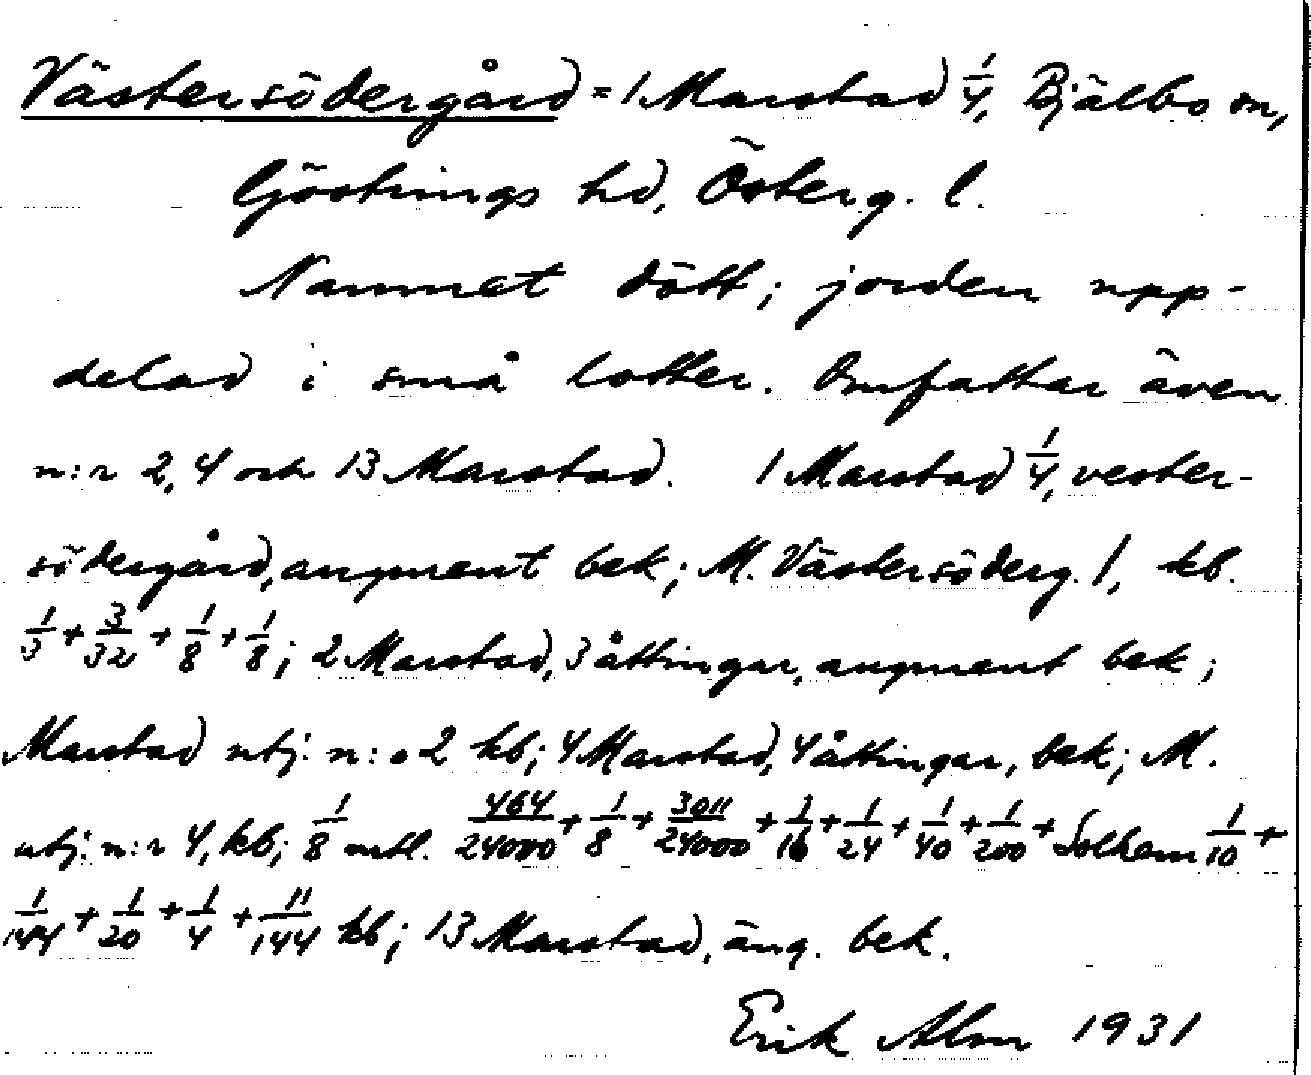 Västersödergård = 1 Marstad 1/4, Bjälbo sn,
Göstrings hd, Österg. l.
Namnet dött; jorden upp-
delad i små lotter. Omfattar även
n:r 2, 4 och 13 Marstad. 1 Marstad 1/4, vester-
södergård, augment bek; M. Västersöderg. 1, kb.
1/3 + 3/32 + 1/8 + 1/8; 2 Marstad, 3 åttingar, augment bek;
Marstad utj. n:o 2 kb; 4 Marstad, 4 åttingar, bek; M.
utj. n:r 4, kb; 1/8 mtl. 464/24000 + 1/8 + 3011/24000 + 1/16 + 1/24 + 1/40 + 1/200 + Solhem 1/10 +
1/144 + 1/20 + 1/4 + 11/144 kb; 13 Marstad, äng. bek.
Erik Alm 1931